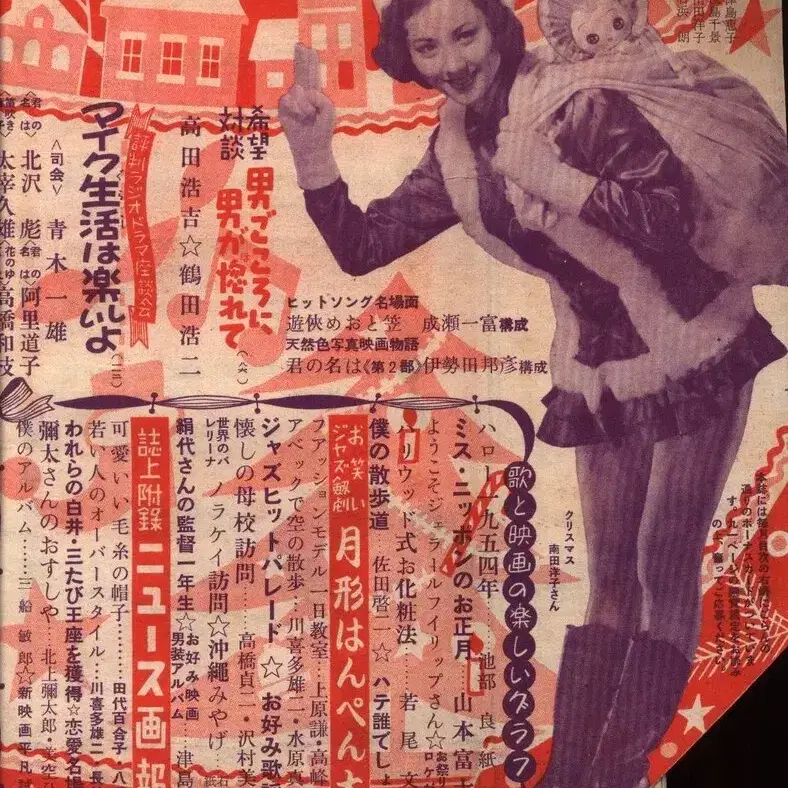 希望対談
男ごころに、男が惚れて
高田浩吉☆鶴田浩二
評判ラジオドラマ座談会
マイク生活は楽しいよ
〈司会〉青木一雄
〈君の名は〉北沢彪〈君の名は〉阿里道子
太宰久雄〈花のゆ〉高橋和枝
ヒットソング名場面
遊侠めおと笠 成瀬一富構成
天然色写真映画物語
君の名は《第2部》伊勢田邦彦構成
歌と映画の楽しいグラフ
ハロー一九五四年……池部良
ミス・ニッポンのお正月……山本富士
ようこそジェラールフイリップさん☆お祭りロケ
ハリウッド式お化粧法……若尾文
僕の散歩道……佐田啓二☆ハテ誰でしょ
お笑いジャズ劔劇 月形はんぺん太
フアッションモデル一日教室…上原謙・高峰
アベックで空の散歩…川喜多雄二・水原真
ジャズヒットパレード☆お好み歌謡
懐しの母校訪問……高橋貞二・沢村美
世界のバレリーナ ノラケイ訪問☆沖縄みやげ
絹代さんの監督一年生☆お好み映画男装アルバム…津島
誌上附録 ニュース画報
可愛いい毛糸の帽子……田代百合子・八
若い人のオーバースタイル…川喜多雄二・長
われらの白井・三たび王座を獲得☆恋愛名場
彌太さんのおすしや…北上彌太郎・美空ひ
僕のアルバム……三船敏郎☆新映画平凡試
クリスマス
南田洋子さん